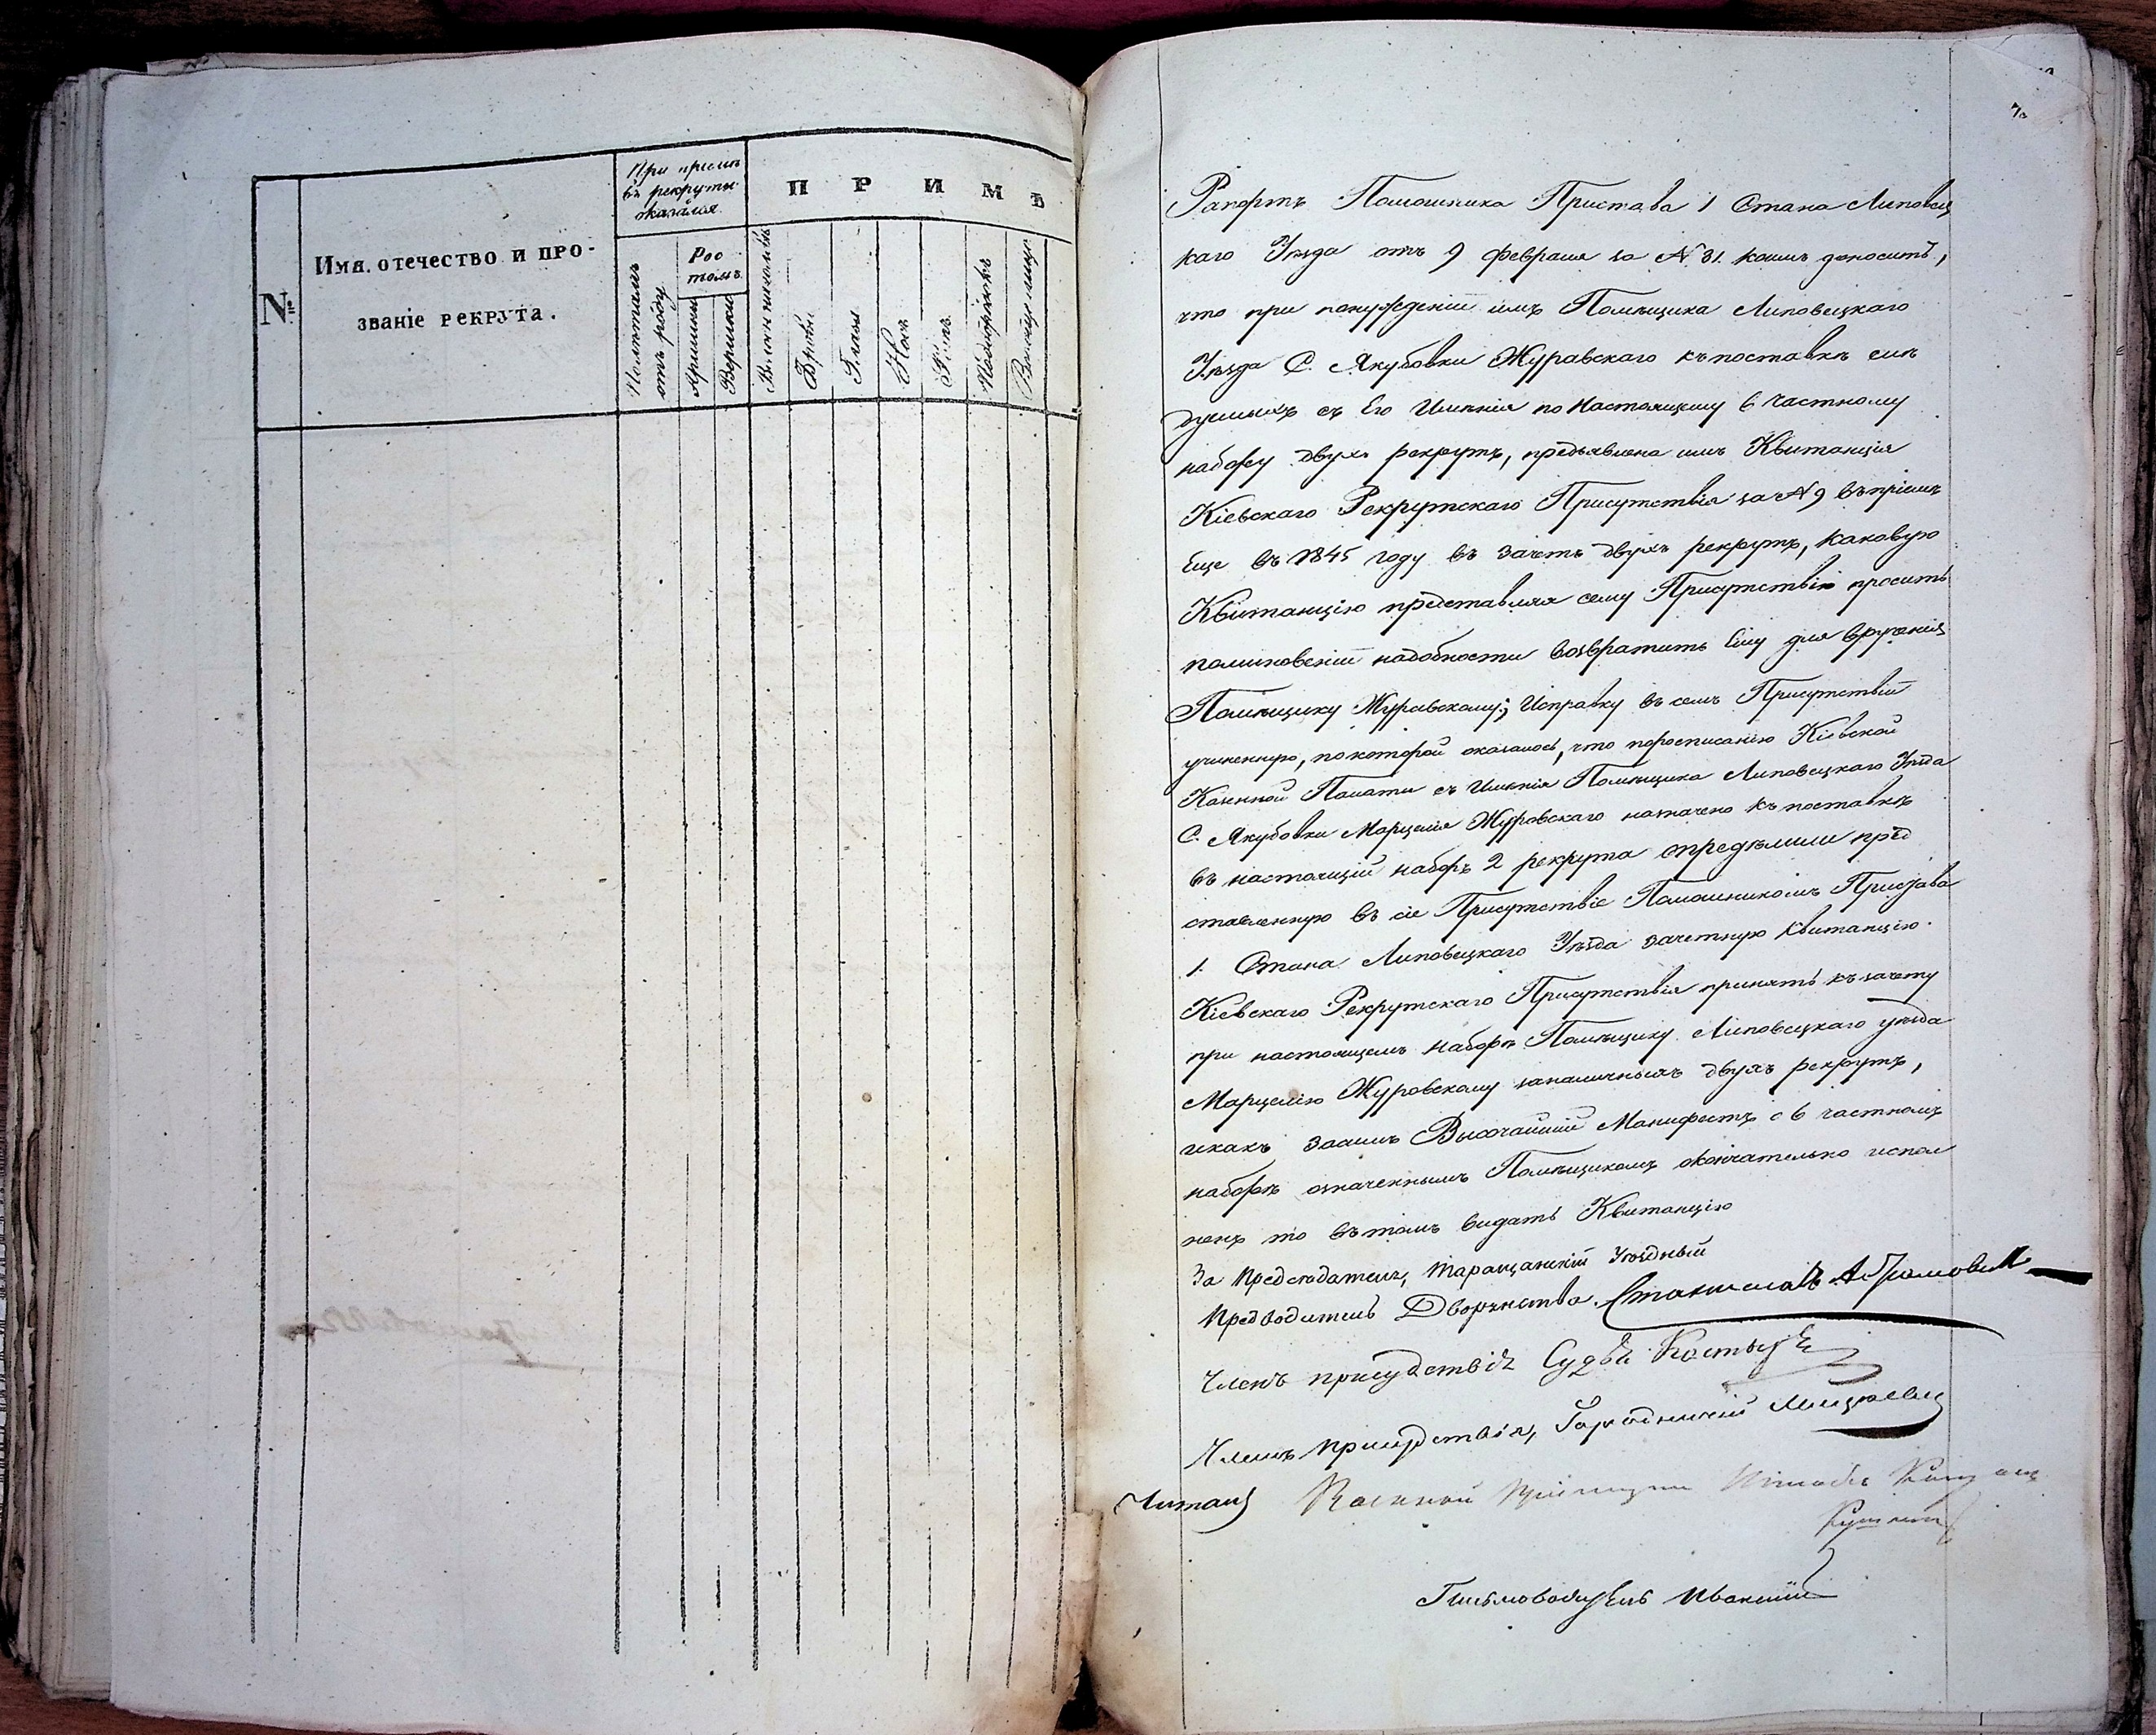 №
Имя, отечество и про-
званіе рекрута.
При пріемѣ
въ рекруты
оказалося.
Полѣтамъ
отъ роду
Рос
томъ
Аршины
Вершки
П Р И М Ѣ
Волосы на головѣ
Брови
Глаза
Носъ
Ротъ
Подбородокъ
Рапортъ Помошника Пристава 1 Стана Липовец
каго Уѣзда отъ 9 февраля за № 31. коимъ доноситъ,
что при понужденіи имъ Помѣщика Липовецкаго
Уѣзда С. Якубовки Журавскаго къ поставкѣ слѣ
дуемыхъ съ Его Имѣнія по Настоящему 6 частному
набору двухъ рекрутъ, предъявлена имъ Квитанція
Кіевскаго Рекрутскаго Присутствія за № 9 въ пріемѣ
Еще въ 1845 году въ зачетъ двухъ рекрутъ, каковую
Квитанцію представляя сему Присутствію проситъ
поминовеніи надобности возвратить Ему для врученія
Помѣщику Журавскому; Исправку въ семъ Присутствіи
учиненную, по которой оказалось, что поросписанію Кіевской
Казенной Палаты съ Имѣнія Помѣщика Липовецкаго Уѣзда
С. Якубовки Марцелія Журовскаго назначено къ поставкѣ
въ настоящій наборъ 2 рекрута опредѣлили пред
ставленную въ сіе Присутствіе Помошникомъ Пристава
1. Стана Липовецкаго Уѣзда зачетную квитанцію
Кіевскаго Рекрутскаго Присутствія принять къ зачету
при настоящемъ наборѣ Помѣщику Липовецкаго уѣзда
Марцелію Журовскому заналичныхъ двухъ рекрутъ,
икакъ засимъ Высочайшій Манифестъ о 6 частномъ
наборѣ означеннымъ Помѣщикомъ окончательно испол
ненъ то въ томъ видать Квитанцію
За Предсѣдателя, Таращанскій Уѣздный
Предводитель Дворянства Станиславъ Абрамович
Членъ присудствія Судья
Членъ присудствія, Городничій
Читалъ Военной пріемщикъ Штабсъ
Письмоводитель Ивакинъ